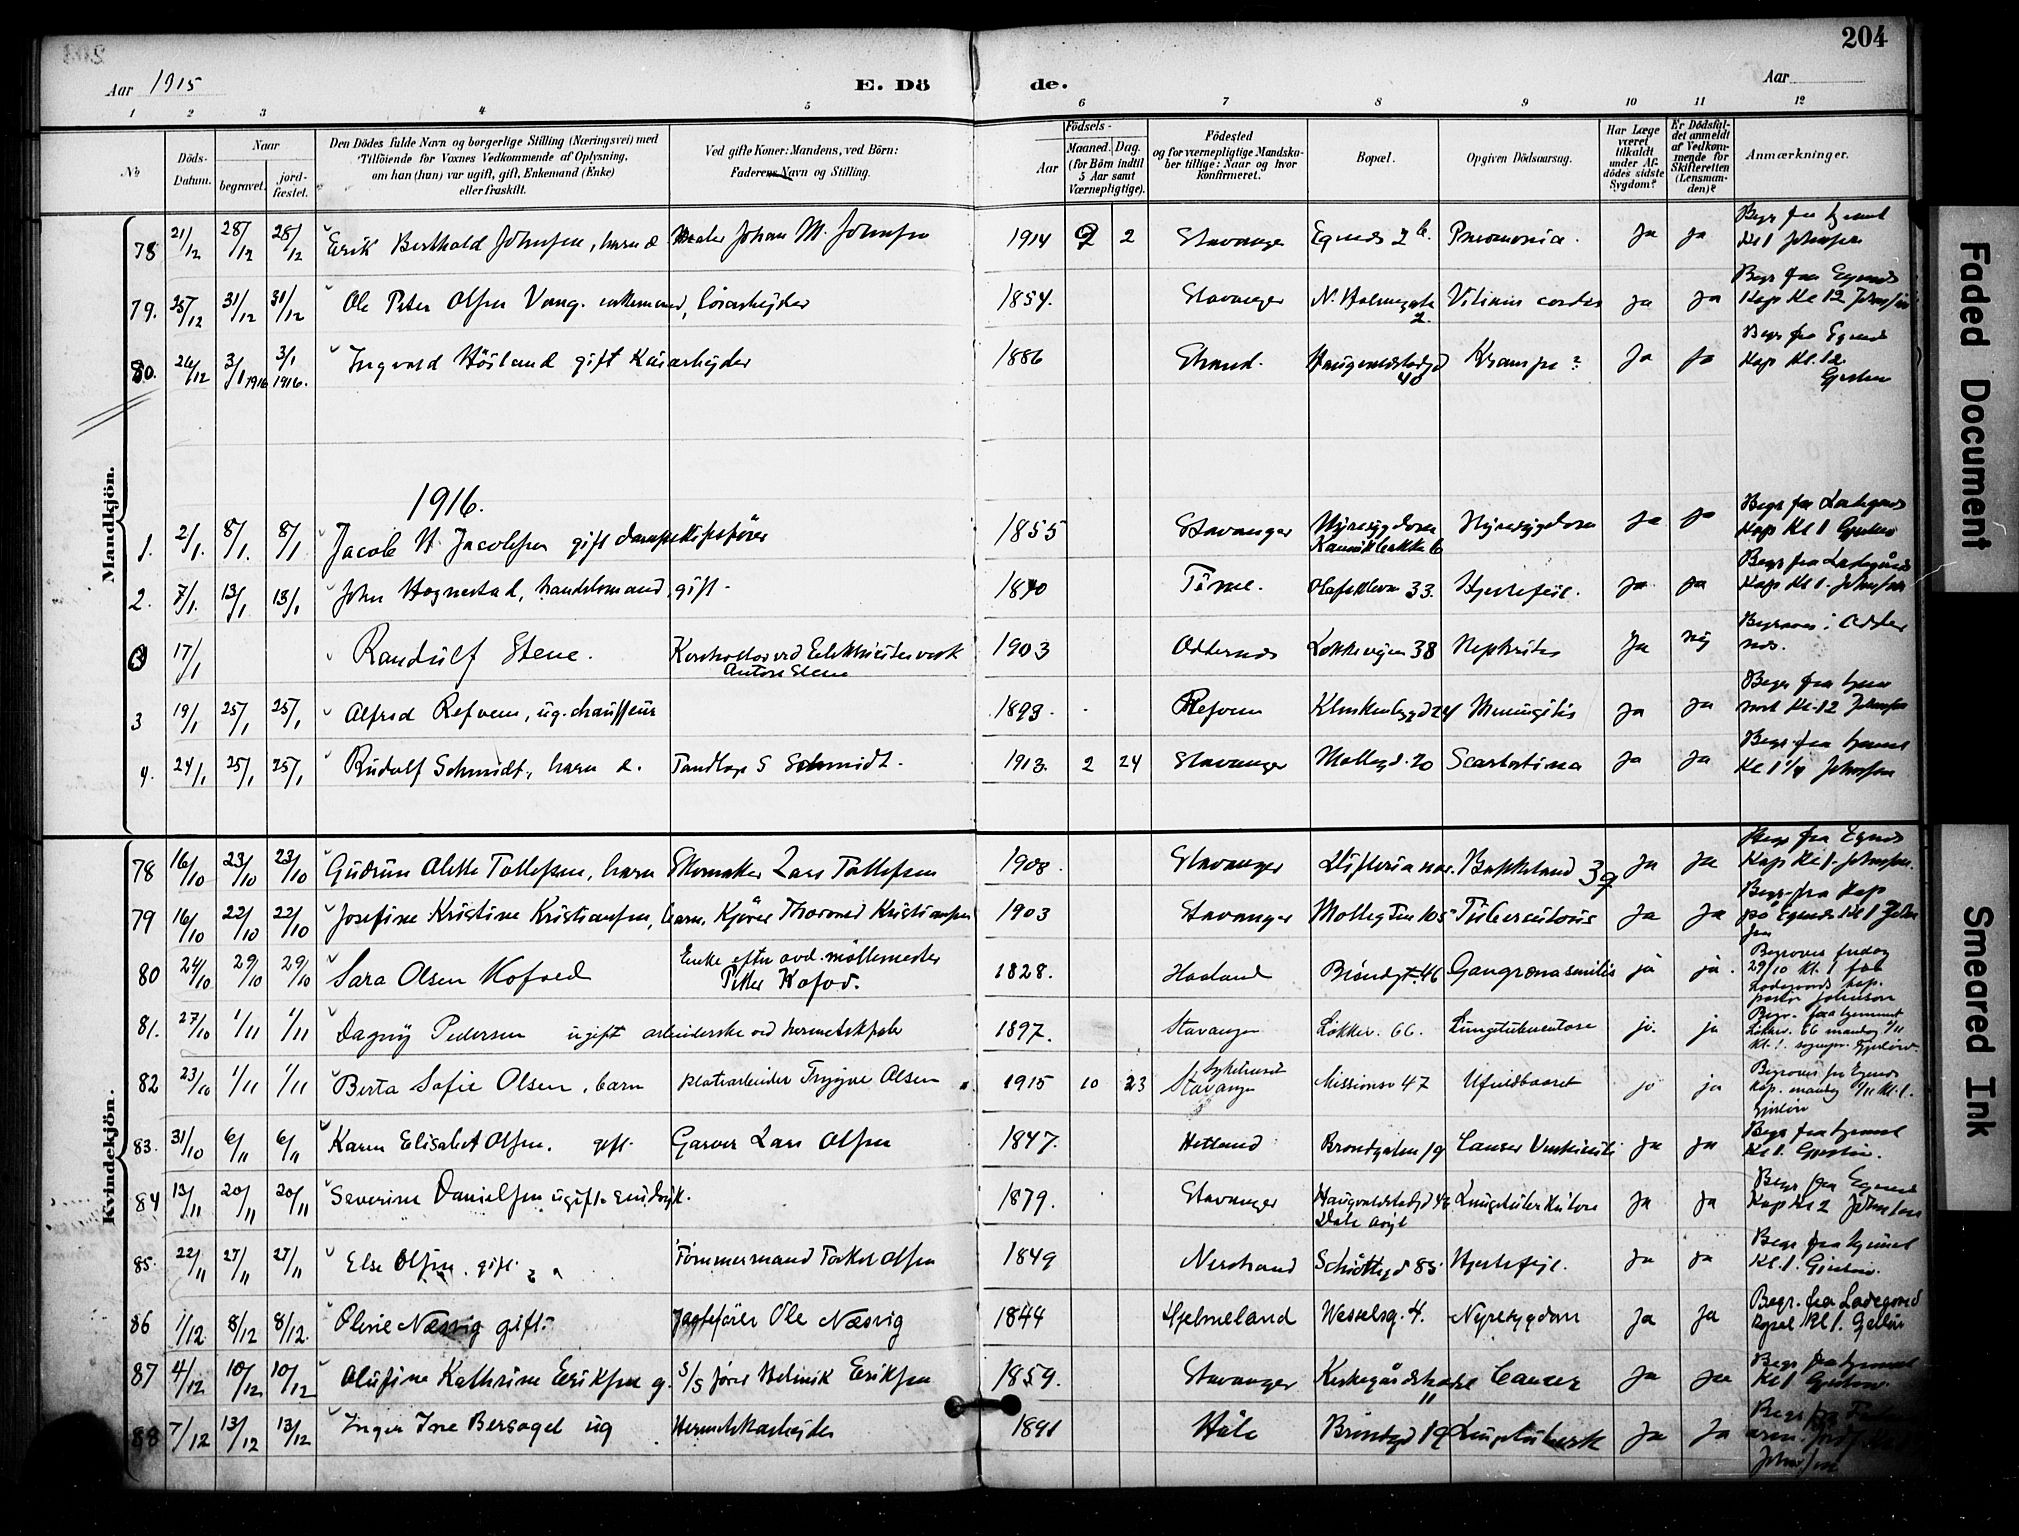 204
Aar 1915
E. Dö de.
Aar
1 2 3 4 5 6 7 8 9 10 11 12
No
Döds-Datum.
Naar
begravet.
jord-fæstet.
Den Dödes fulde Navn og borgerlige Stilling (Næringsvei) med
Tilföiende for Voxnes Vedkommende af Oplysning,
om han (hun) var ugift, gift, Enkemand (Enke)
eller fraskilt.
Ved gifte Koner: Mandens, ved Börn:
Faderens Navn og Stilling.
Födsels-
Aar
Maaned. Dag.
(for Börn indtil
5 Aar samt
Værnepligtige).
Födested
og for værnepligtige Mandska-
ber tillige: Naar og hvor
konfirmeret.
Bopæl.
Opgiven Dödsaarsag.
Har Læge
været
tilkaldt
under Af-
dödes sidste
Sygdom?
Er Dödsfal-
det anmeldt
af Vedkom-
mende for
Skifteretten
(Lensman-
den)?
Anmærkninger.
Mandkjön.
78 21/12 28/12 28/12 Erik Berthold Johnsen, barn a Maaler Johan M. Johnsen 1914 9 2 Stavanger Egenes 26. Pneomonia. Ja ja Begr fra hjemmet Kl 1 Johnsen
79. 25/12 31/12 31/12 Ole Peter Olsen Vang. enkemand, løsarbejder 1854. Stavanger N. Holmegate 2. Vitium cordis ja ja Begr fra Egenes Kap Kl 12 Johnsen
80. 26/12 3/1 1916 3/1 1916. Ingvald Høsland gift Kaiarbejder 1886 Strand. Haugevaldstadgd 40 Krampe? Ja ja Begr fra Egenes Kap Kl. 12. Gjerløw
1916.
1. 2/1. 8/1. 8/1 Jacob N. Jacobsen gift dampskipsfører 1855 Stavanger Nyresygdom Kannikbakke 6 Nyresygdom ja ja Begr fra Ladegaards Kap Kl 1 Gjerløw
2. 7/1. 13/1 13/1 John Hognestad, handelsmand, gift. 1870 Time. Olafskleven 33. Hjertefeil. ja ja Begr fra Ladegårds Kap Kl 1. Johnsen
17/1 Randulf Stene. Kontrollør ved Elektricitetsverk Anton Stene 1903 Oddernes Løkkeveien 38 Nephritis Ja nej Begraves i Oddernes.
3 19/1 25/1 25/1 Alfred Refvem, ug. chauffeur 1893 Refvem Klinkenbggd 24 Meningitis ja ja Begr fra hjemmet Kl. 12 Johnsen
4. 24/1 25/1 25/1 Rudolf Schmidt, barn a. Tandlæge S Schmidt. 1913. 2 24 Stavanger Møllegd. 20 Scarlatina ja ja Begr. fra hjemmet Kl 1 1/4 Johnsen
Kvindekjön.
78 16/10 23/10 23/10 Gudrun Alette Tollefsen, barn Skomaker Lars Tollefsen 1908. Stavanger Difteria nas. Bakkeland 39 Ja ja Begr fra Egenes Kap Kl 1. Johnsen.
79 16/10 22/10 22/10 Josefine Kristine Kristiansen, barn. Kjører Thormod Kristiansen 1903 Stavanger Tuberculosis Ja Ja Begr. fra Kap på Egenes Kl 1 Johnsen
80 24/10 29/10 29/10 Sara Olsen Kofoed Enke efter avd. møllemester Petter Kofod. 1828. Haaland Brøndgt. 46 Gangræna senilis ja ja. Begraves fredag 29/10 kl. 1 fra Ladegaards kap. pastor Johnson
81. 27/10 1/11 1/11 Dagny Pedersen ugift arbeiderske ved hermetikfabr 1897. Stavanger Løkkev. 66. Lungetuberculose ja. ja Begr. fra hjemmet Løkkev. 66 mandag 1/11 Kl. 1. sognepr. Gjerløw.
82 23/10 1/11 1/11 Berta Sofie Olsen, barn Platearbeider Trygve Olsen 1915 10 23 Sykehuset Stavanger Missionsv 47 Ufuldbaaret ja ja Begraves fra Egenes Kap. mandag 1/11 kl. 1. Gjerløw
83. 31/10 6/11 6/11 Karen Elisabet Olsen. gift. Garver Lars Olsen 1847. Hetland Brøndgaten 19 Cancer Ventriculi ja ja Begr fra hjemmet Kl 1. Gjerløw.
84 13/11 20/11 20/11 Severine Danielsen ugift sindsyk. 1879. Stavanger Haugevaldstadgd 46 Dale asyl Lungetuberkulose Ja Ja Begr fra Egenes Kap Kl 2 Johnsen
85. 22/11 27/11 27/11 Else Olsen. gift. Tømmermand Torkel Olsen 1849 Nerstrand Schiøttegd 85 Hjertefejl. Ja ja Begr fra hjemmet Kl. 1. Gjerløw.
86 1/12 8/12 8/12. Oline Næsvig gift. Jagtefører Ole Næsvig 1844 Hjelmeland Wesselsg. 4. Nyresygdom Ja Ja Begr. fra Ladegaard kapel Kl 1. Gjerløw
87 4/12 10/12 10/12 Olufine Kathrine Eriksen g. S/S fører Helmik Eriksen 1859. Stavanger Kirkegårdsbakke 11 Cancer ja ja Begr fra hjemmet Kl 1 Gjerløw.
88 7/12 13/12 13/12 Inger Ine Bersagel ug Hermetikarbejder 1841 Høle Brøndgd 19 Lungetuberk Ja Ja Johnsen
Faded Document
Smeared Ink